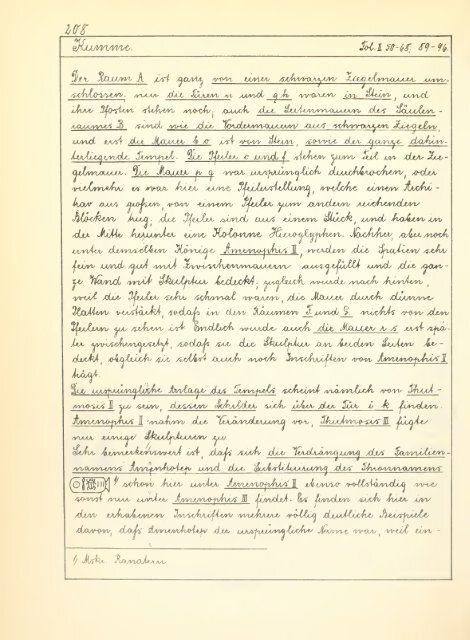 208
Kumme. Fol. II 50-68, 89-96.
Der Raum A ist ganz von einer schwarzen Ziegelmauer um-
schlossen, nur die Türen n und g h waren in Stein, und
ihre Pfosten stehen noch; auch die Seitenmauern des Säulen-
raumes B sind wie die Vordermauern aus schwarzen Ziegeln,
und erst die Mauer b o ist von Stein, sowie der ganze dahin-
terliegende Tempel. Die Pfeiler e und f stehen zum Teil in der Zie-
gelmauer. Die Mauer p q war ursprünglich durchbrochen, oder
vielmehr es war hier eine Pfeilerstellung, welche einen Archi-
trav aus großen, von einem Pfeiler zum andern reichenden
Blöcken trug; die Pfeiler sind aus einem Stück, und haben in
der Mitte herunter eine Kolonne Hieroglyphen. Nachher, aber noch
unter demselben Könige Amenophis II, werden die Spatien sehr
fein und gut mit Zwischenmauern ausgefüllt und die gan-
ze Wand mit Skulptur bedeckt; zugleich wurde nach hinten,
weil die Pfeiler sehr schmal waren, die Mauer durch dünne
Platten verstärkt, sodaß in den Räumen F und G nichts von den
Pfeilern zu sehen ist. Endlich wurde auch die Mauer r s erst spä-
ter zwischengesetzt, sodaß sie die Skulptur an beiden Seiten be-
deckt, obgleich sie selbst auch noch Inschriften von Amenophis II
trägt.
Die ursprüngliche Anlage des Tempels scheint nämlich von Thut-
mosis II zu sein, dessen Schilder sich über der Tür i k finden.
Amenophis II nahm die Veränderung vor, Thutmosis III fügte
nur einige Skulpturen zu.
Sehr bemerkenswert ist, daß sich die Verdrängung des Familien-
namens Amenhotep und die Substituierung des Thronnamens
1) schon hier unter Amenophis II ebenso vollständig wie
sonst nur unter Amenophis III findet. Es finden sich hier in
den erhabenen Inschriften mehrere völlig deutliche Beispiele
davon, daß Amenhotep der ursprüngliche Name war, weil ein-
1) Mskr.